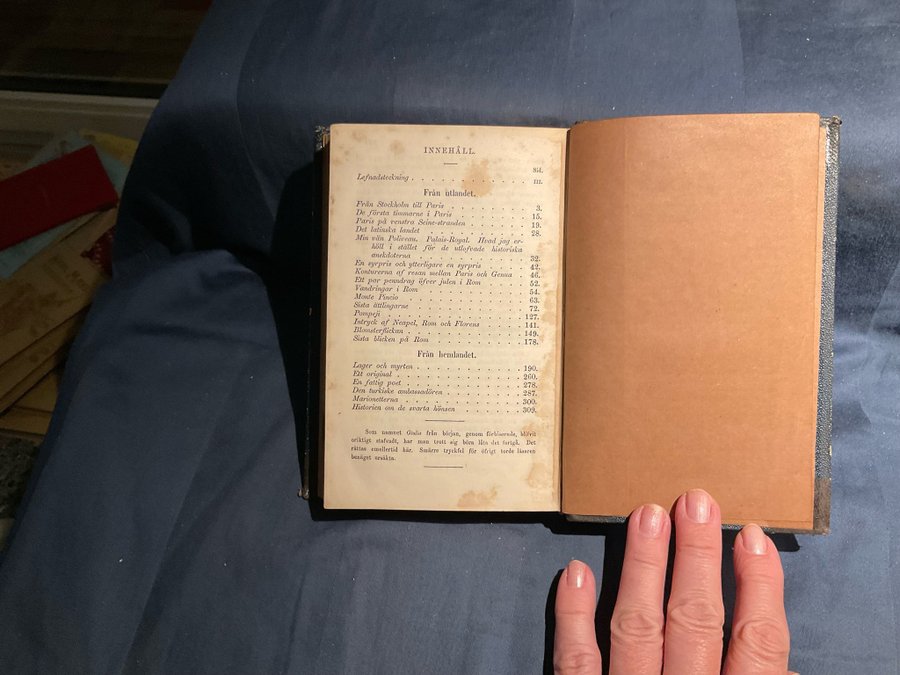 INNEHÅLL.
Sid.
Lefnadsteckning . . . . . . . . . . III.
Från utlandet.
Från Stockholm till Paris . . . . . . . . 3.
De första timmarne i Paris . . . . . . . . 15.
Paris på venstra Seine-stranden . . . . . . . 19.
Det latinska landet . . . . . . . . . . 28.
Min vän Polivean. Palais-Royal. Hvad jag er-
höll i stället för de utlofvade historiska
anekdoterna . . . . . . . . . . 32.
En syrpris och ytterligare en syrpris . . . . . 42.
Konturerna af resan mellan Paris och Genua . . 46.
Ett par penndrag öfver julen i Rom . . . . . 52.
Vandringar i Rom . . . . . . . . . . 54.
Monte Pincio . . . . . . . . . . 63.
Sista ättlingarne . . . . . . . . . . 72.
Pompeji . . . . . . . . . . 127.
Intryck af Neapel, Rom och Florens . . . . . 141.
Blomsterflickan . . . . . . . . . . 149.
Sista blicken på Rom . . . . . . . . . 178.
Från hemlandet.
Lager och myrten . . . . . . . . . . 190.
Ett original . . . . . . . . . . 260.
En fattig poet . . . . . . . . . . 278.
Den turkiske ambassadören . . . . . . . . 287.
Marionetterna . . . . . . . . . . 300.
Historien om de svarta hönsen . . . . . . . 309.
Som namnet från början, genom förbiseende, blifvit
oriktigt stafvadt, har man trott sig böra låta det fortgå. Det
rättas emellertid här. Smärre tryckfel för öfrigt torde läsaren
benäget ursäkta.